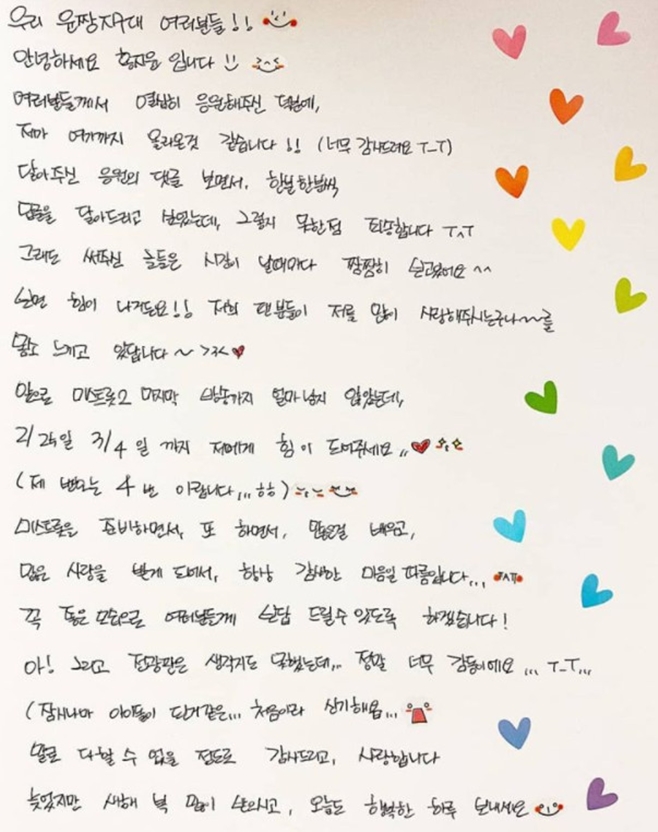 우리 윤짱지구대 여러분들!!
안녕하세요 홍지윤 입니다 !!
여러분들께서 열심히 응원해주신 덕분에,
저가 여기까지 올라온것 같습니다!! (너무 감사드려요 T_T)
달아주신 응원의 댓글 보면서, 한분한분씩
답글을 달아드리고 싶었는데, 그렇지 못한점 죄송합니다 T^T
그래도 써주신 글들은 시간이 날때마다 짬짬히 읽고있어요 ^^
읽으면 힘이 나거든요!! 저희 팬분들이 저를 많이 사랑해주시는구나~~를
몸소 느끼고 있답니다~ >3<
앞으로 미스트롯2 마지막 방송까지 얼마남지 않았는데,
2/25일 3/4일 까지 저에게 힘이 되어주세요,,
(제 번호는 4번 이랍니다,,, ㅎㅎ)
미스트롯을 준비하면서, 또 하면서, 많은걸 배우고,
많은 사랑을 받게 되어서, 항상 감사한 마음일 따름입니다,,,
꼭 좋은 모습으로 여러분들께 보답 드릴수 있도록 하겠습니다!
아! 그리고 전광판은 생각지도 못했는데,,, 정말 너무 감동이에요 ,,, T_T,,,
(잠시나마 아이돌이 된거같은,,, 처음이라 신기해요,,,
말로 다할 수 없을 정도로 감사드리고, 사랑합니다
늦었지만 새해 복 많이 받으시고, 오늘도 행복한 하루 보내세요